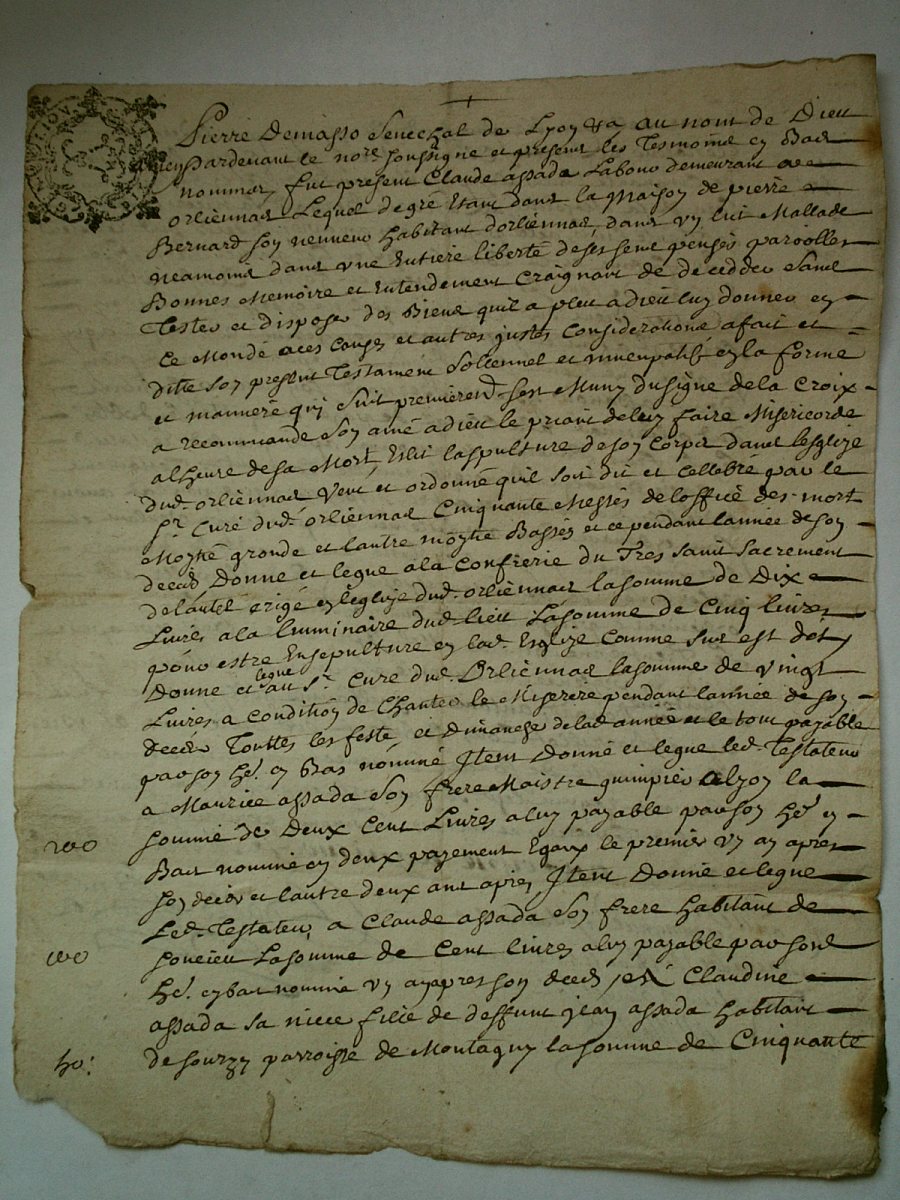 Pierre Demasso Senechal de Lyon &a au nom de Dieu
Pardevant le nore soussigne et presens les Tesmoins en Bas
nommes, fut present Claude assada Labour demeurant
orliennas Lequel de gre Etant dans la Maison de pierre
Bernard son nepveu habitant dorliennas, dans un lict Mallade
neamoins dans une Entiere liberté de ses sens pensés parolles
Bonnes Memoire et Entendement Craignant de deceddér sans
Tester et disposer des Biens quil a pleu a dieu luy donner en
Ce Monde a ces Causes et autres justes Considerations a fait et
ditte son present Testament Sollennel et nuncupatif en la forme
et maniere qui suit premierent sest Muny du signe de la Croix
a recommande son ame a dieu le priant de luy faire Misericorde
a lheure de sa Mort, Eslit la spulture de son Corps dans lesglize
dud. orliennas Veut et ordonne quil soit dit et Cellebré par le
Sr. Curé dud. orliennas Cinquante Messes de loffice des mort
Moytié grande et lautre moytie Basses et ce pendant lannée de son
deces Donne et legue a la Confrerie du Tres saint Sacrement
de lautel erigé en leglize dud. orliennas la somme de Dix
Livres a la luminaire dud. lieu La somme de Cinq livres
pour estre Ensepulture en lad. Esglize Comme sus est dot
Donne et legue au Sr. Cure dud. Orliennas la somme de vingt
Livres a Condition de Chanter le Miserere pendant lannee de son
deces Touttes les feste et dimanche de lad. année et le tout payable
par son he. en Bas nommé Item Donne et legue led. Testateur
a Maurice assada son frere Maistre guimpier a lyon la
somme de Deux Cent Livres a luy payable par son he. en
200
Bas nomme en deux payement Egaux le premier un an apres
son deces et lautre deux ans apres, Item Donne et legue
Led. Testateur a Claude assada son frere habitant de
soucieu La somme de Cent livres a luy payable par sond
100
he. en bas nomme un an apres son deces, et a Claudine
assada sa niece fille de deffunt jean assada habitant
de sourzy parroisse de Montagny la somme de Cinquante
50: